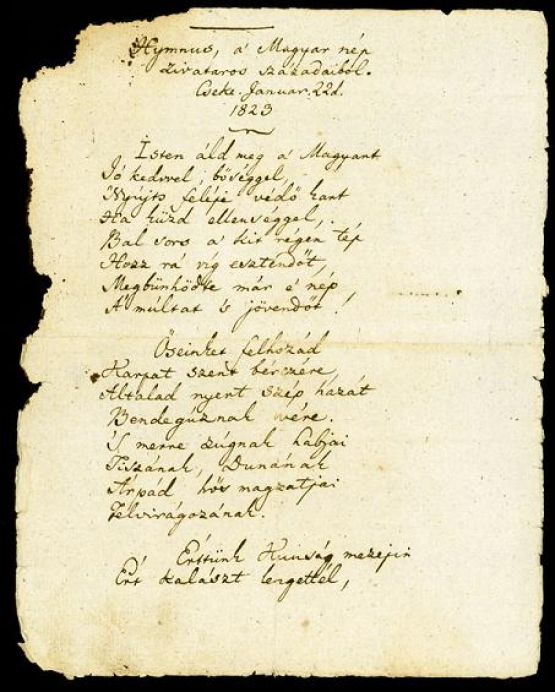 Hymnus, a' Magyar nép
zivataros századaiból.
Cseke. Januar. 22d.
1823
Isten áld meg a' Magyart
Jó kedvvel, bőséggel,
Nyujts feléje védő kart
Ha küzd ellenséggel,
Bal sors a' kit régen tép
Hozz rá víg esztendőt,
Megbűnhödte már e' nép
A' múltat 's jövendőt!
Őseinket felhozád
Kárpát szent bérczére,
Általad nyert szép hazát
Bendegúznak vére.
'S merre zúgnak habjai
Tiszának, Dunának
Árpád hős magzatjai
Felvirágozának.
Értünk Kunság mezejin
Ért kalászt lengettél,